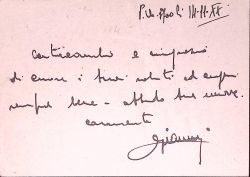 contraccambio e ringrazio
di cuore i tuoi saluti ed auguri
sempre bene - attendo tue nuove.
caramente
Gianni